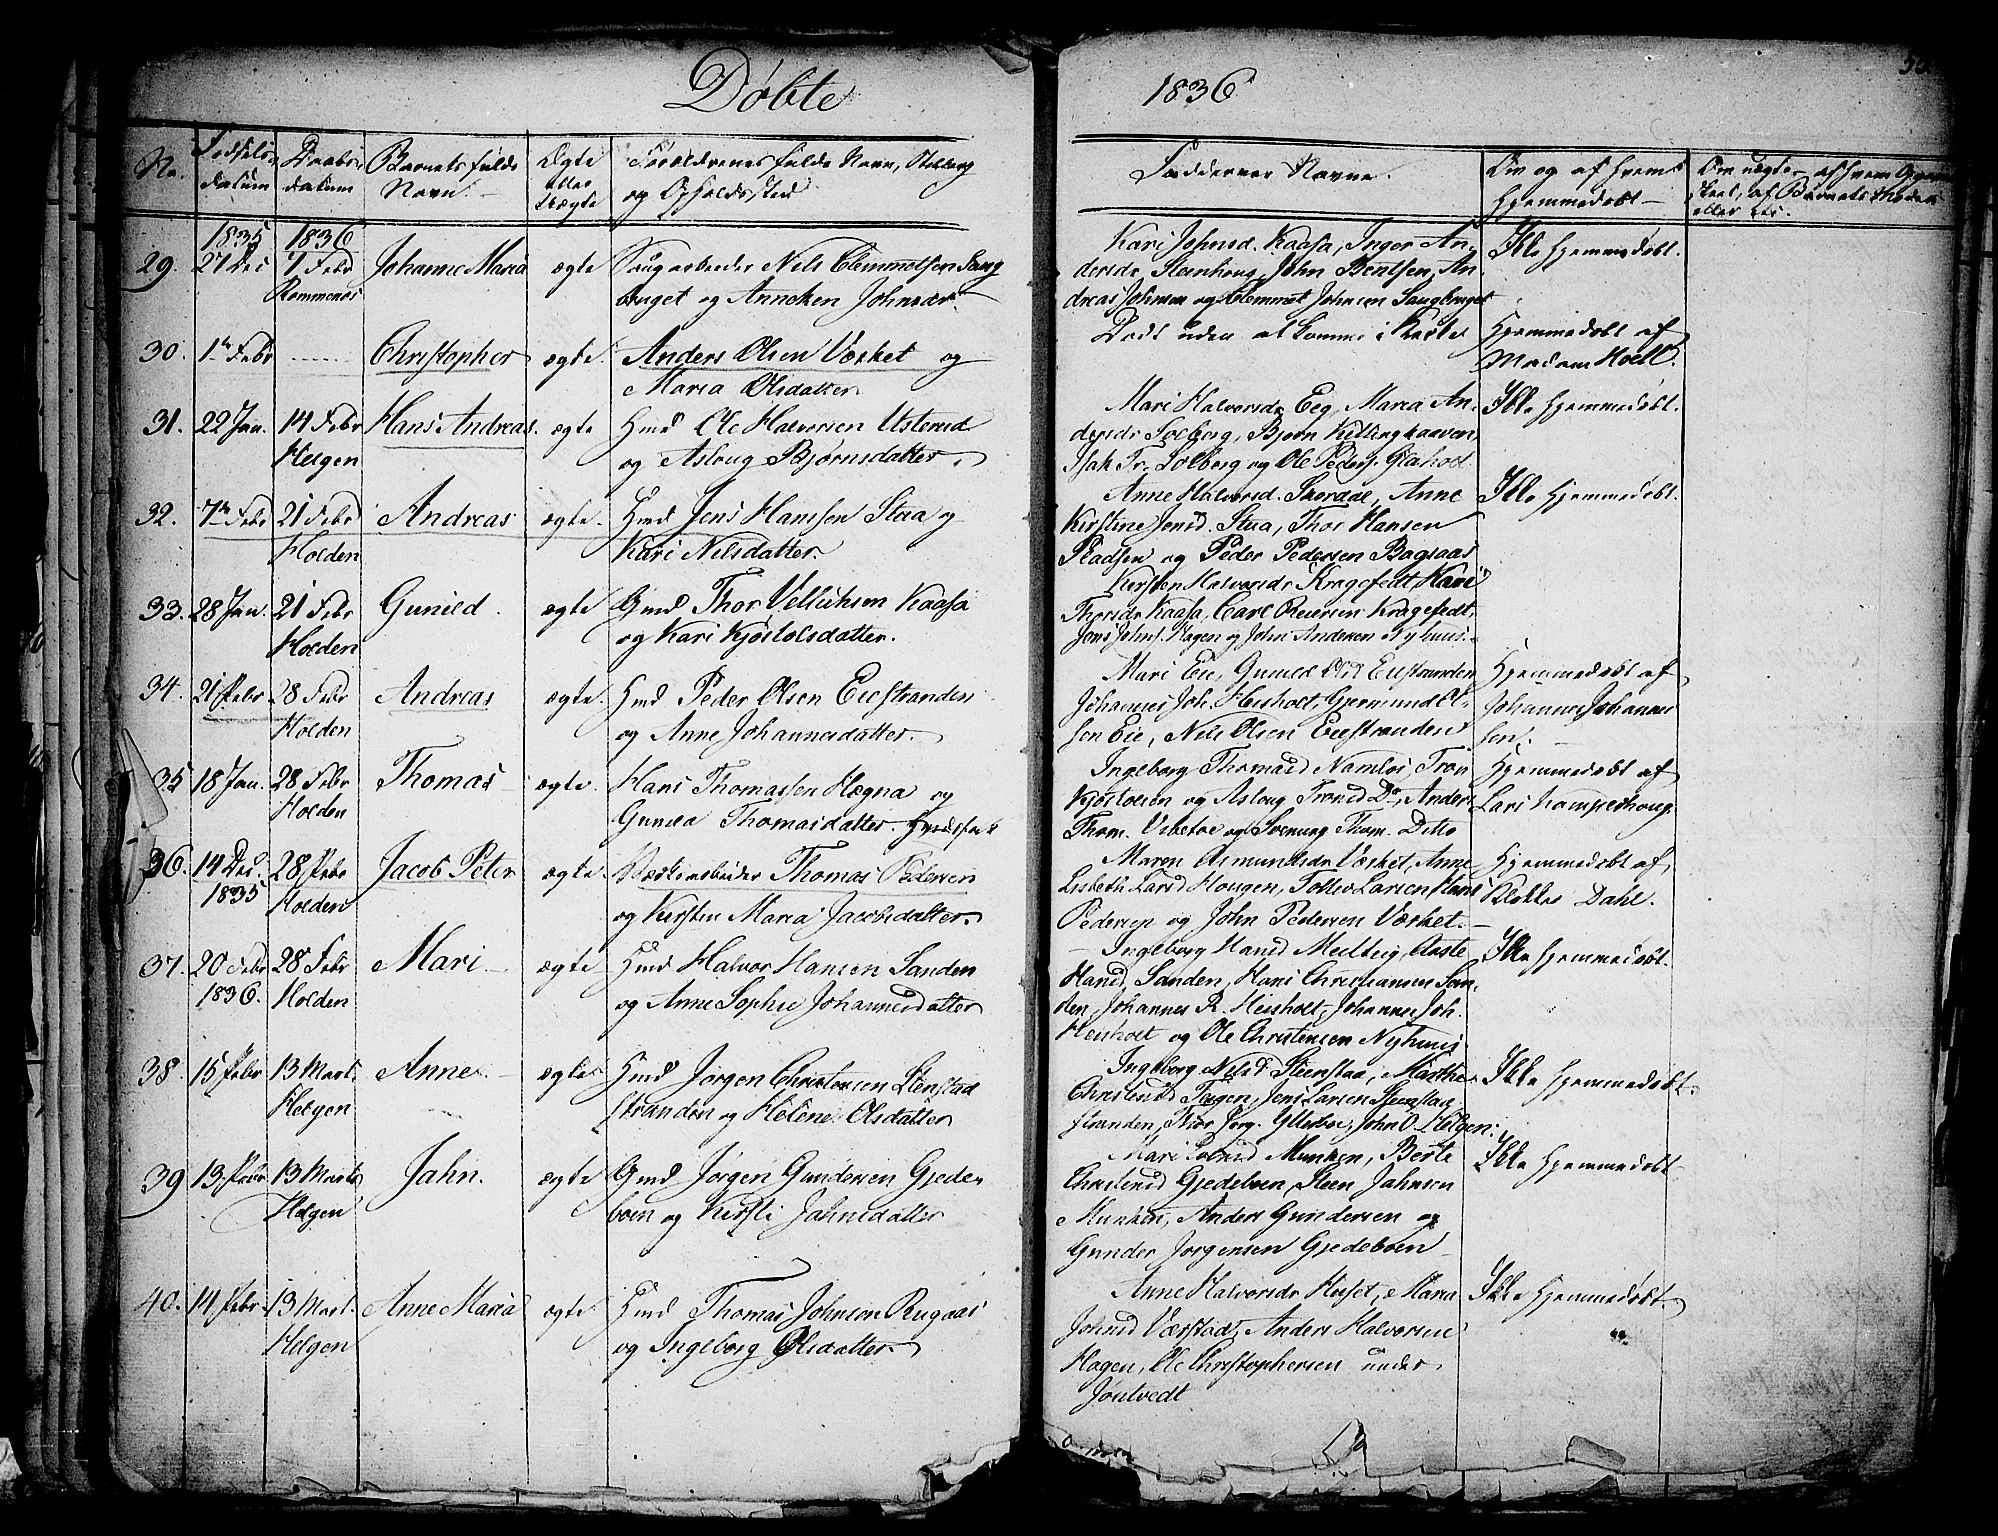 Døbte
1836
No.
Fødsels-
datum
Daabs-
datum
Barnets fulde
Navn.
Ægte
eller
Uægte
Forældrenes fulde Navn, Stilling
og Opholdssted
Faddernes Navne.
Om og af hvem
hjemmedøbt
1835 1836
29. 27 Dec 7 Febr Johanne Maria ægte Saugarbeider Nils Clemmetsen Saug
Rommenæs bruget og Anneken Johnsdr.
Kari Johnsd. Kaasa, Inger An-
dersdr Steenhoug, John Bentsen, An-
dreas Johnsen og Clemmet Johnsen Saugbruget
Ikke hjemmedøbt.
30. 1ste Febr Christopher ægte. Anders Olsen Værket og
Maria Olsdatter
Dødt uden at komme i Kirke
Hjemmedøbt af
Madam Hoell.
31. 22 Jan. 14 Febr Hans Andreas. ægte Hmd Ole Halvorsen Usterud
Helgen og Aslaug Bjørnsdatter.
Mari Halvorsdr Eeg, Maria An-
dersdr Solberg, Bjørn Killinghaaven,
Isak Tr. Solberg og Ole Peders.
Ikke hjemmedøbt.
32. 7de Febr 21 Febr Andreas ægte. Hmd Jens Hansen Staa og
Holden Kari Nilsdatter.
Anne Halvorsd. Anne
Kirstine Jensd. Staa, Thor Hansen
Pladsen og Peder Pedersen Bagaas
Ikke hjemmedøbt.
33. 28 Jan. 21 Febr Gunild. ægte Gmd Thor Kaasa
Holden og Kari Kjøstolsdatter.
Kirsten Halvorsdr Kragefedt, Kari
Thorsdr Kaasa, Carl Kragefedt,
Jens Johns. Hagen og John Andersen Nyhuus.
34. 21 Febr 28 Febr Andreas ægte. Hmd Peder Olsen Eiestranden
Holden og Anne Johannesdatter.
Mari Eie, Gunild Olsd Eiestranden
Johannes Joh. Heisholt, Gjermund Ol-
sen Eie, Nils Olsen Eiestranden
Hjemmedøbt af
Johannes Johannes
sen.
35 18 Jan. 28 Febr Thomas ægte. Hans Thomassen Hægna og
Holden Gunild Thomasdatter.
Ingeborg Thomasd Namløs, Tron
Kjøstolsen og Aslaug Tronsd Do, Anders
Thom. og Svenung Thom. Ditto
Hjemmedøbt af
Lars Kamperhoug.
36. 14 Dec. 28 Febr Jacob Peter ægte. Værksarbeider Thomas Pedersen
1835 Holden og Kirsten Maria Jacobsdatter.
Maren Asmundsdr Værket, Anne
Lisbeth Larsd Hougen, Tollev Larsen, Hans
Pedersen og John Pedersen Værket.
Hjemmedøbt af
Dahl.
37. 20 Febr 28 Febr Mari ægte Hmd Halvor Hansen Sanden
1836. Holden og Anne Sophie Johannesdatter
Ingeborg Hansd Aaste
Hansd. Sanden, Hans Christiansen San-
den, Johannes R. Heisholt, Johannes Joh.
Heisholt og Ole Christensen Nyhuus
Ikke hjemmedøbt.
38. 15 Febr 13 Marts. Anne. ægte Hmd Jørgen Christensen Stenstad
Helgen stranden og Helene Olsdatter
Ingeborg Nilsd Steenstad, Marthe
Christensd Jens Larsen Steenstad
stranden, Thor Jørg. John O. Helgen.
Ikke hjemmedøbt.
39 13 Febr 13 Marts Jahn. ægte Gmd Jørgen Gundersen Gjede-
Helgen boen og Kirsti Jahnsdatter
Mari Munken, Berte
Christensd Gjedeboen, Steen Jahnsen
Munken, Anders Gundersen og
Gunder Jørgensen Gjedeboen
Ikke hjemmedøbt
40. 14 Febr 13 Mart. Anne Maria ægte Hmd Thomas Johnsen Rugaas
Helgen og Ingeborg Olsdatter.
Anne Halvorsdr Huset, Maria
Johnsd Anders Halvorsen
Hagen, Ole Christophersen under
Jøntvedt
Ikke hjemmedøbt.